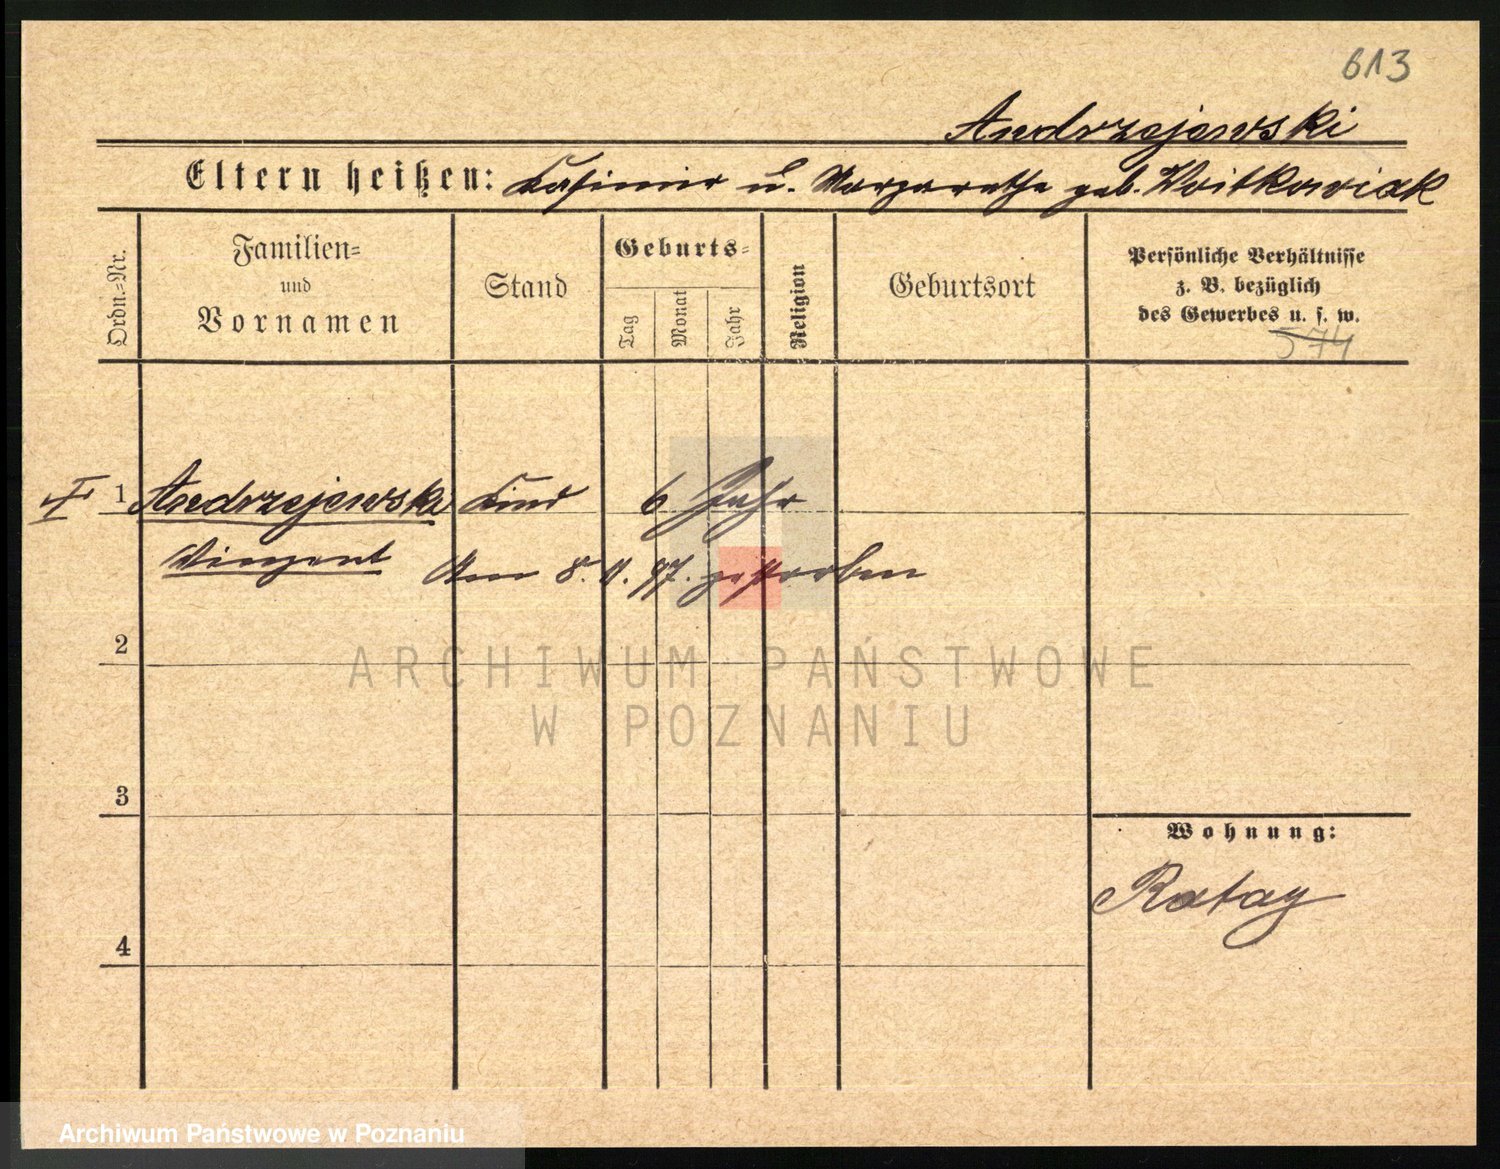 613
Andrzejewski
Eltern heißen: Kasimir u. Margarethe geb. Woitkowiak
Ordn.=Nr.
Familien=
und
Vornamen
Stand
Geburts=
Tag
Monat
Jahr
Religion
Geburtsort
Persönliche Verhältnisse
z. B. bezüglich
des Gewerbes u. s. w.
574
I 1 Andrzejewski Kind 6 Jahr
Vinzent Am 8. 11. 97. gestorben
2
ARCHIWUM PAŃSTWOWE
W POZNANIU
3
Wohnung:
Ratay
4
Archiwum Państwowe w Poznaniu